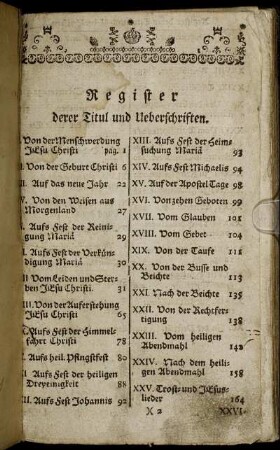 Register
derer Titul und Ueberschriften.
Von der Menschwerdung
JEsu Christi pag. 1
I. Von der Geburt Christi 6
I. Auf das neue Jahr 22
V. Von den Weisen aus
Morgenland 27
Aufs Fest der Reini-
gung Mariä 29
I. Aufs Fest der Verkün-
digung Mariä 30
II Vom Leiden und Ster-
ben JEsu Christi. 31
III. Von der Auferstehung
JEsu Christi 65
Aufs Fest der Himmel-
fahrt Christi 78
Aufs heil. Pfingstfest 80
I. Aufs Fest der heiligen
Dreyeinigkeit 88
II. Aufs Fest Johannis 92
XIII. Aufs Fest der Heim-
suchung Mariä 93
XIV. Aufs Fest Michaelis 94
XV. Auf der Apostel Tage 98
XVI. Von zehen Geboten 99
XVII. Vom Glauben 101
XVIII. Vom Gebet 104
XIX. Von der Taufe 111
XX. Von der Busse und
Beichte 113
XXI. Nach der Beichte 135
XXII. Von der Rechtfer-
tigung 138
XXIII. Vom heiligen
Abendmahl 142
XXIV. Nach dem heili-
gen Abendmahl 158
XXV. Trost- und JEsus-
lieder 164
X 2 XXVI.